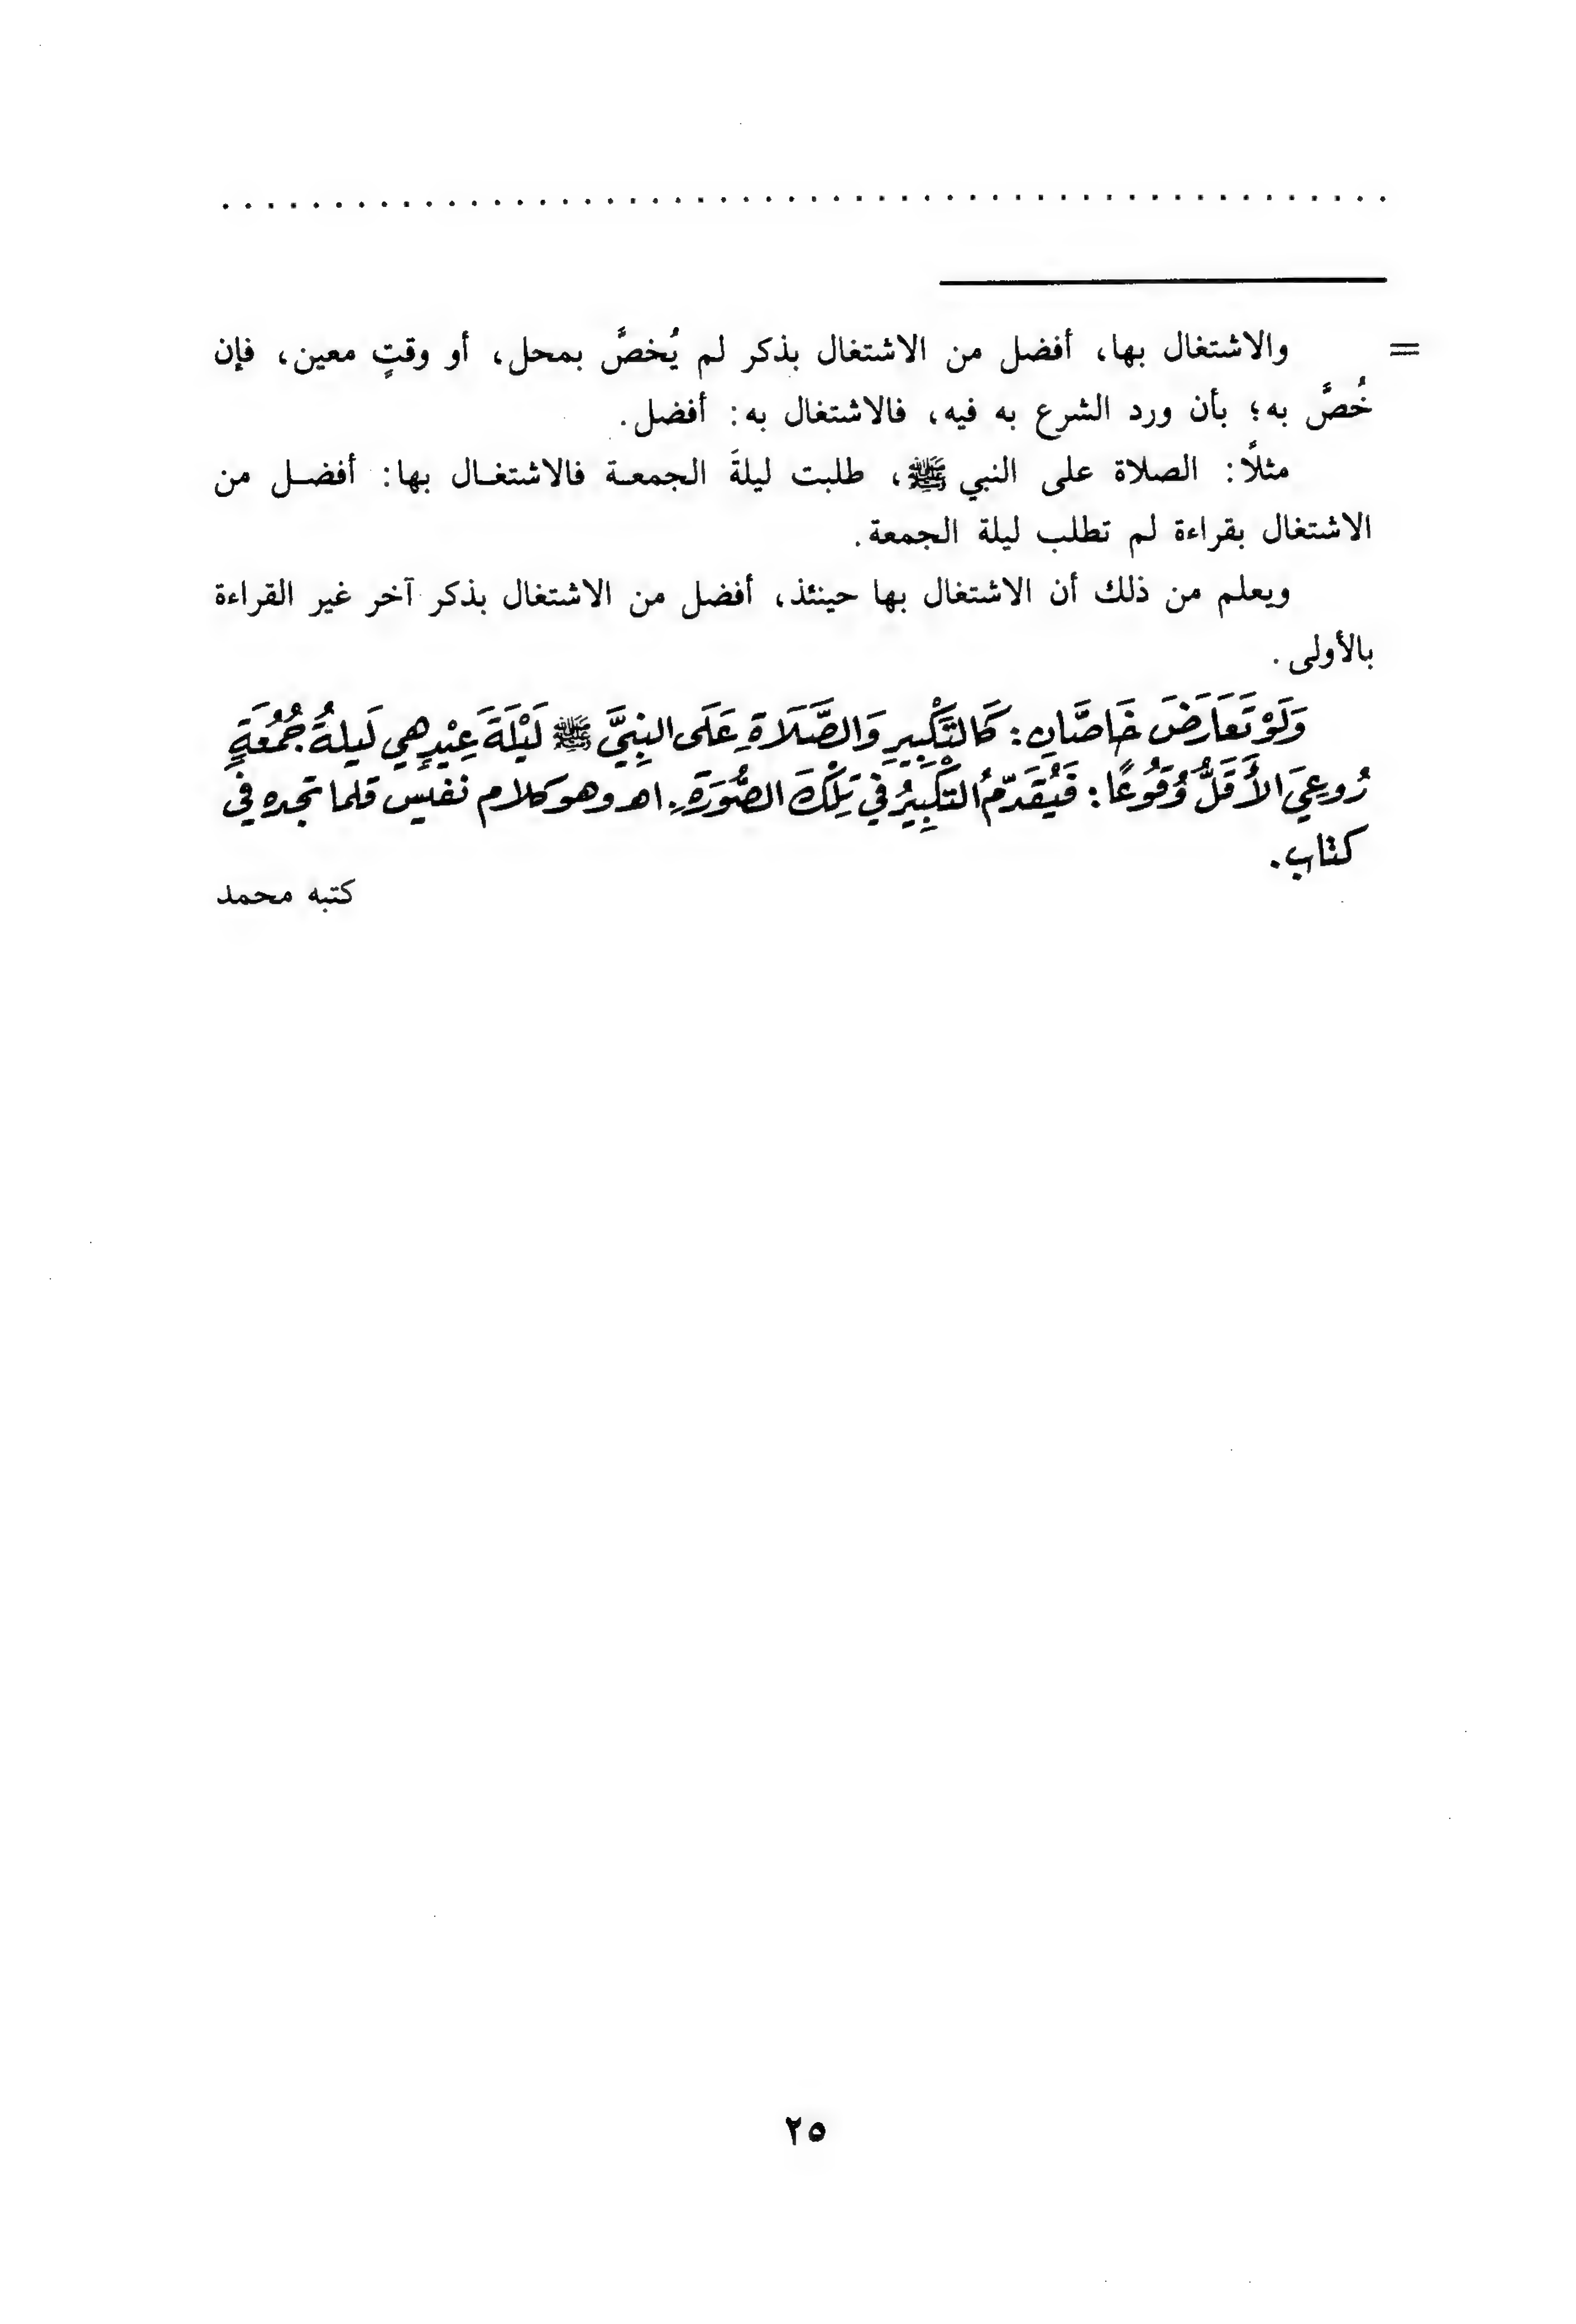 . . . . . . . . . . . . . . . . . . . . . . . . . . . . . . . . . . . . . . . . . . . . . . . . . . . .
= والاشتغال بها، أفضل من الاشتغال بذكر لم يُخصَّ بمحل، أو وقتٍ معين، فإن
خُصَّ به؛ بأن ورد الشرع به فيه، فالاشتغال به: أفضل.
مثلًا: الصلاة على النبي ﷺ، طلبت ليلةَ الجمعـة فالاشتغـال بها: أفضـل من
الاشتغال بقراءة لم تطلب ليلة الجمعة.
ويعلم من ذلك أن الاشتغال بها حينئذ، أفضل من الاشتغال بذكر آخر غير القراءة
بالأولى.
وَلَوْ تَعَارَضَ خَاصَّانِ: كَالتَّكْبِيرِ وَالصَّلَاةِ عَلَى النبِيَّ ﷺ لَيْلَةَ عِيْدٍ هِي لَيلةُ جُمُعَةٍ
رُوعِيَ الأَقَلُّ وُقُوعًا: فَيُقَدّمُ التكْبِيرُ فِي تِلْكَ الصُّوَرَةِ. اهـ وهو كلام نفيس قلما تجده في
كتاب.
كتبه محمد
٢٥